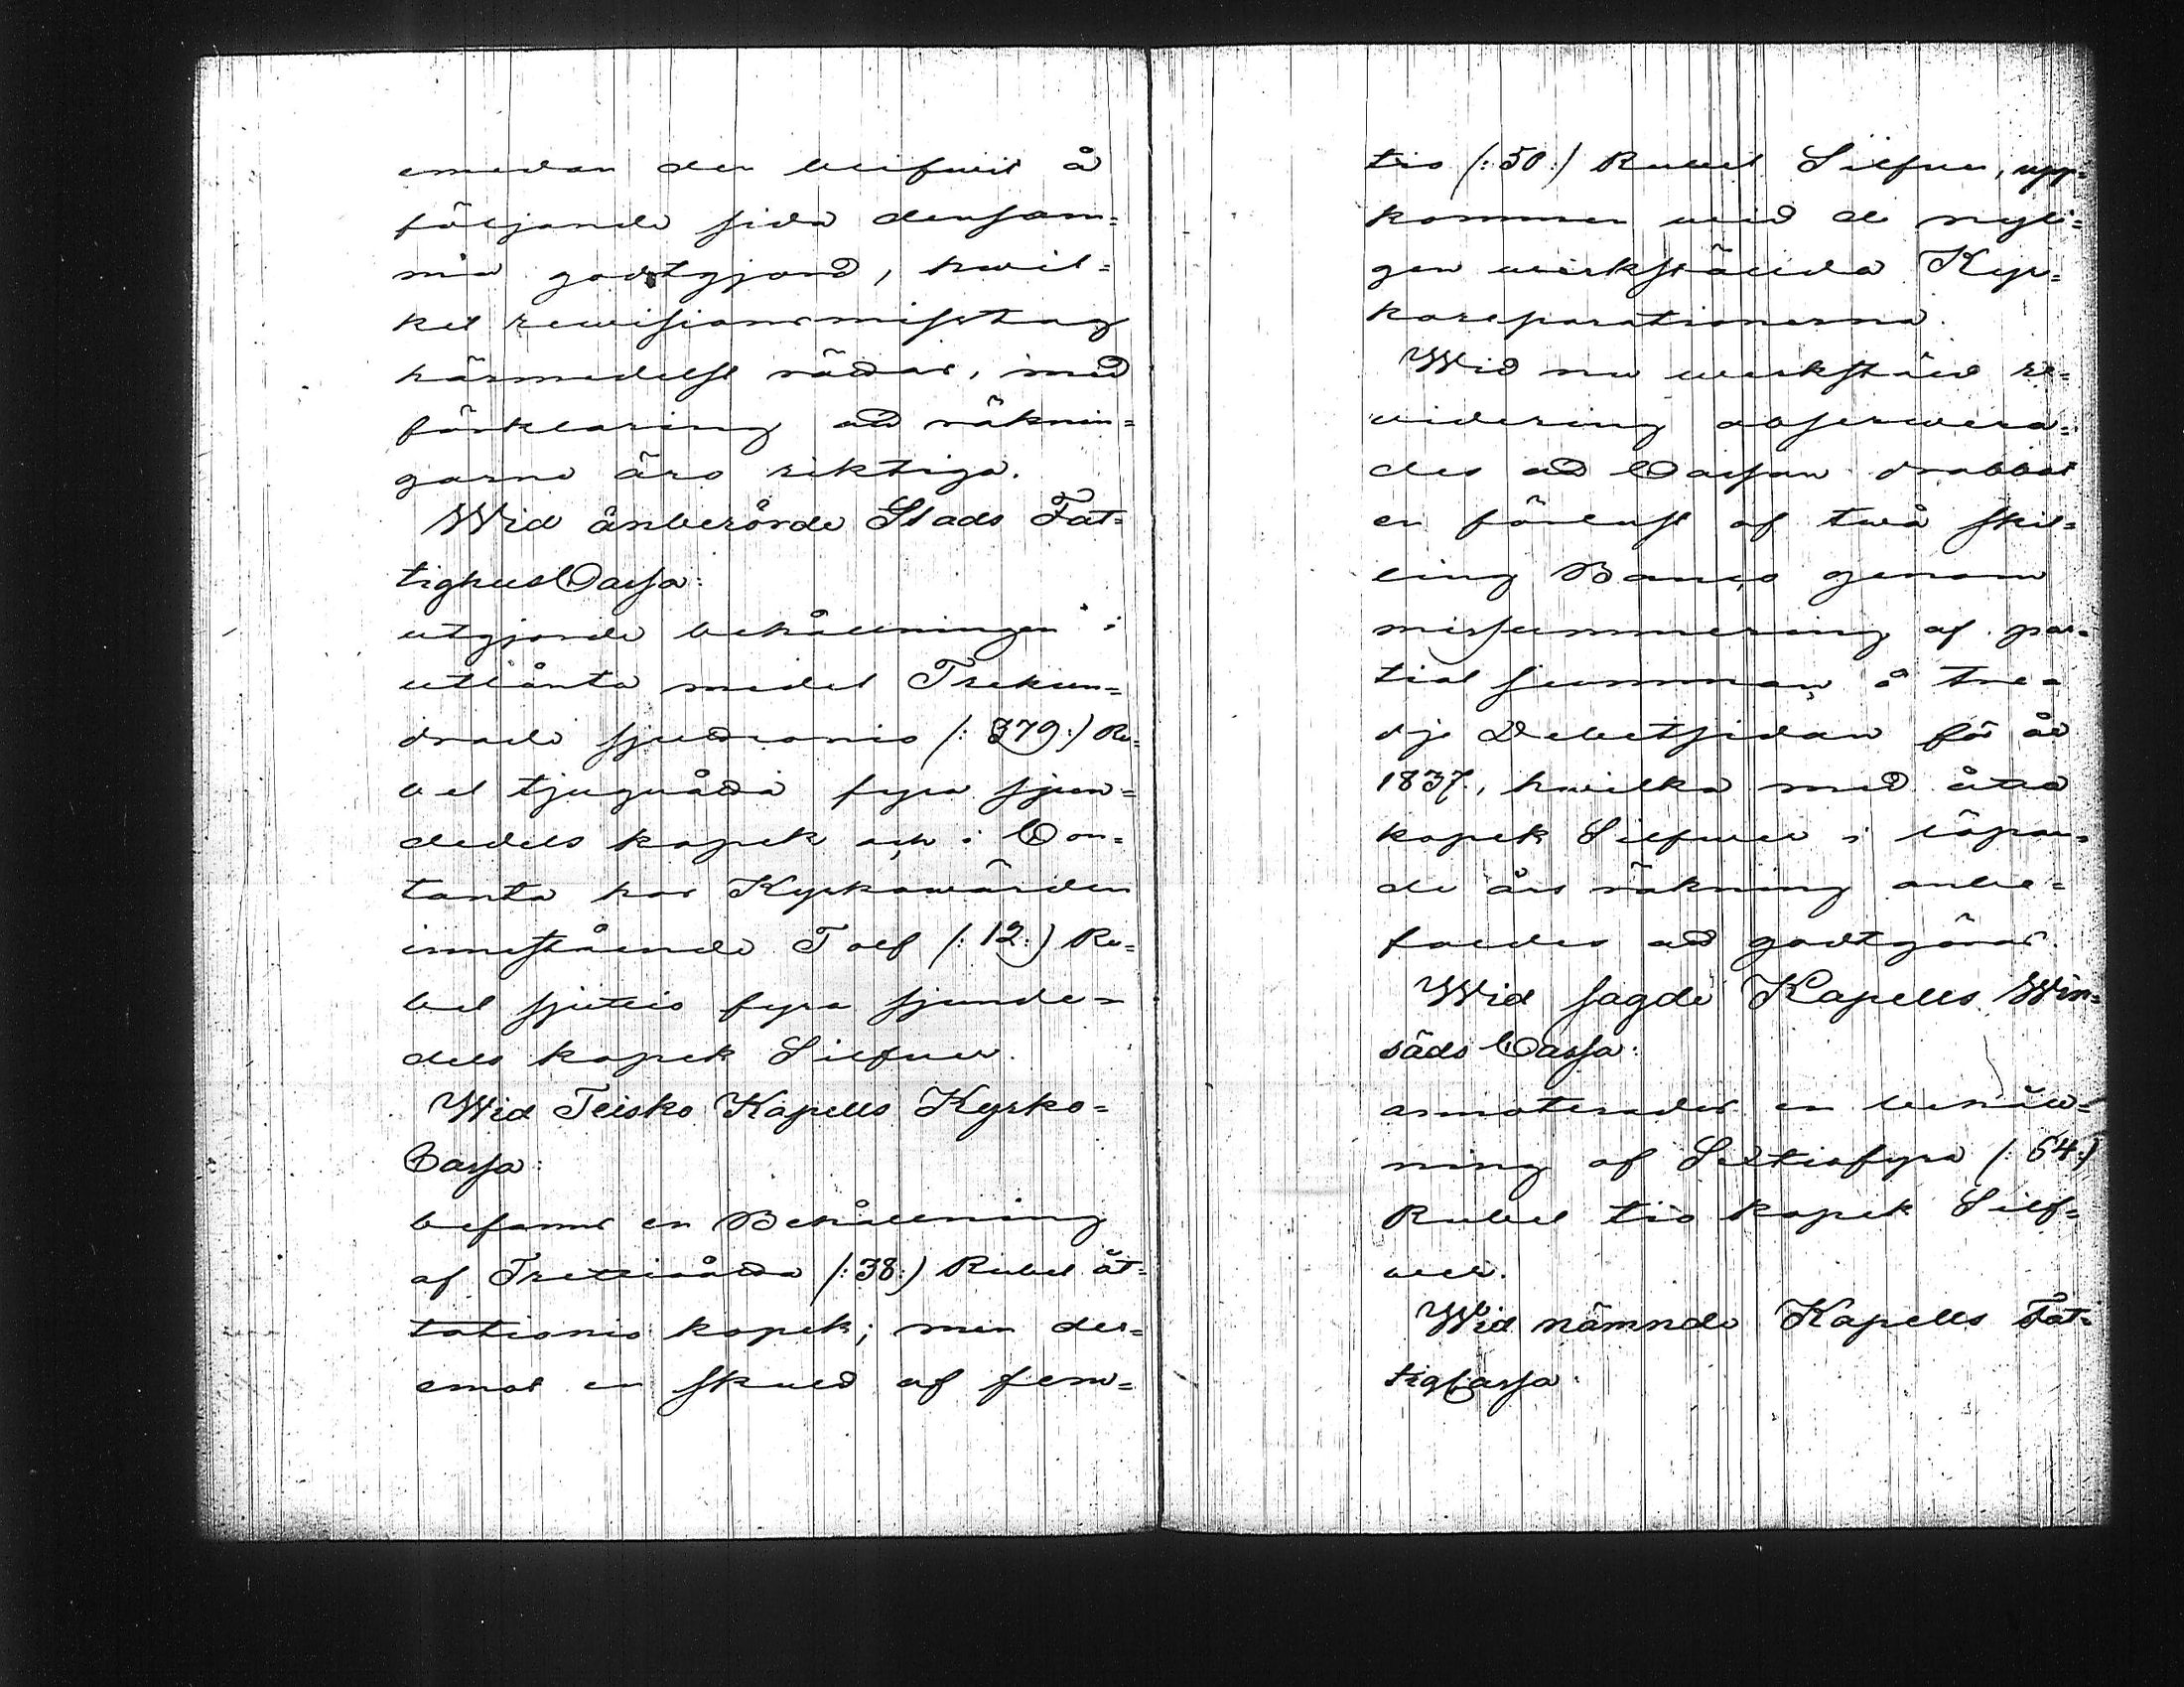 emedan den blifwit å
följande sida densam=
ma godtgjord, hwil=
ket rewisionsmisstag
härmedelst rättas, med
förklaring att räknin=
garne äro riktiga.
Wid ånberörde Stads Fat=
tighusCassa:
utgjorde behållningen i
utlånta medel Trehun=
drade sjuttionio (: 379 :) Ru=
bel tjuguåtta fyra sjun=
dedels kopek och i Con=
tanta hos Kyrkowärden
innestående Tolf (: 12 :) Ru=
bel sjuttio fyra sjunde=
dels kopek Silfwer.
Wid Teisko Kapells Kyrko=
Cassa:
befanns en Behållning
af Trettioåtta (: 38 :) Rubel åt=
tationio kopek; men der=
emot en skuld af fem=
tio (: 50 :) Rubel Silfwer, upp=
kommen wid de nyli=
gen werkstälda Kyr=
koreparationerna.
Wid nu werkstäld re=
widering observera=
des att Cassan drabbat
en förlust af twå skil=
ling Banco genom
missummering af par=
tial summan å tre=
dje Debetsidan för år
1837, hwilka med åtta
kopek Silfwer i löpan=
de års räkning anbe=
faldes att godtgöras.
Wid sagde Kapells Win=
säds Cassa:
annoterades en behåll=
ning af Sextiofyra (: 64 :)
Rubel tio kopek Silf=
wer.
Wid nämnde Kapells Fat=
tigCassa: